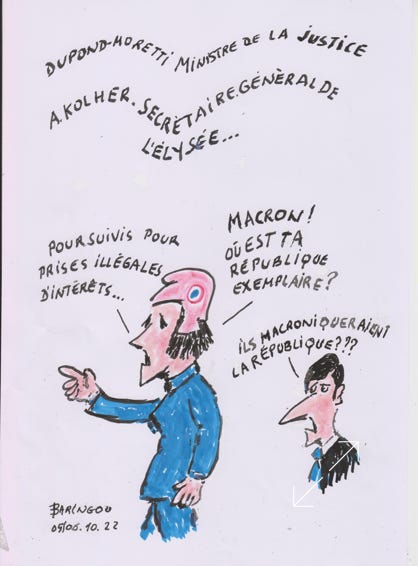 DUPOND-MORETTI MINISTRE DE LA JUSTICE
A.KOLHER. SECRÉTAIRE.GÉNÈRAL DE
L'ÉLYSÉE...
POURSUIVIS POUR
PRISES ILLÉGALES
D'INTÉRÊTS...
MACRON!
OÙ EST TA
RÉPUBLIQUE
EXEMPLAIRE?
ILS MACRONIQUERAIENT
LA RÉPUBLIQUE???
BARINGOU
05/06.10.22